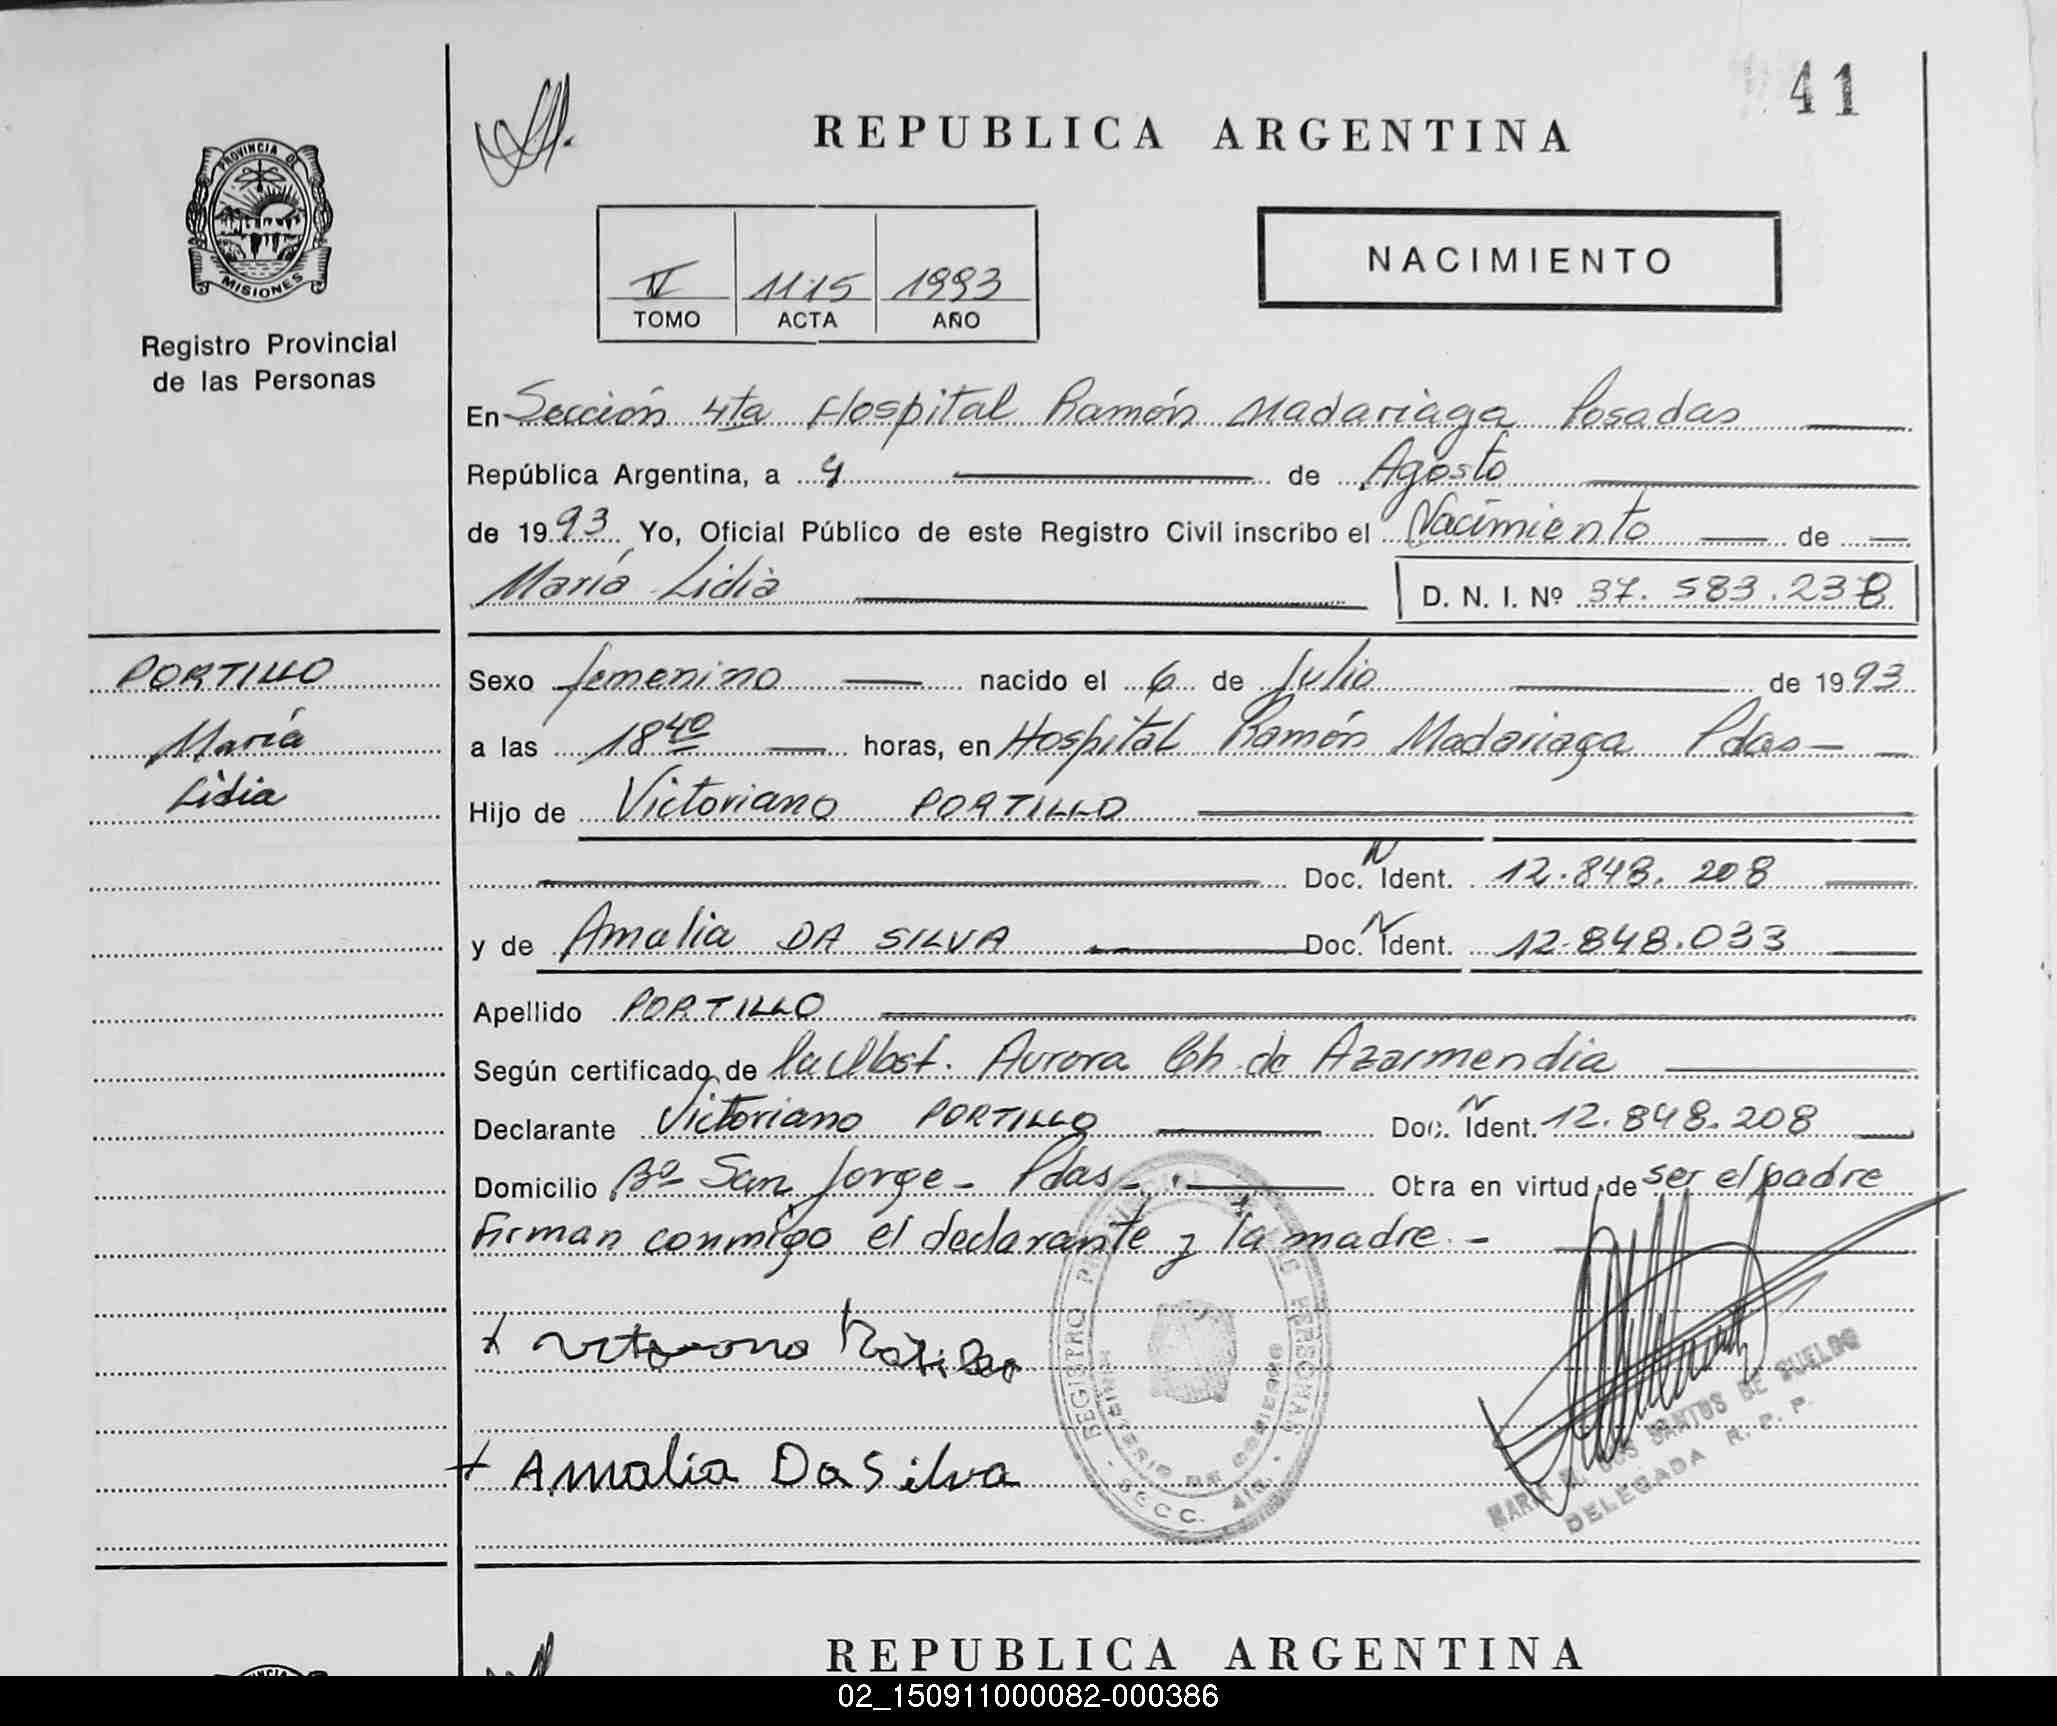 41
REPUBLICA ARGENTINA
PROVINCIA DE
MISIONES
Registro Provincial
de las Personas
NACIMIENTO
1115 1993
TOMO ACTA AÑO
En Sección 4ta Hospital Ramón Madariaga Posadas
República Argentina, a 4 de Agosto
de 1993 Yo, Oficial Público de este Registro Civil inscribo el Nacimiento de
María Lidia D. N. I. Nº 37.583.238
PORTILLO
María
Lidia
Sexo femenino nacido el 6 de Julio de 1993
a las 18 40 horas, en Hospital Ramón Madariaga Pdas
Hijo de Victoriano PORTILLO
Doc. N Ident. 12.848.208
y de Amalia DA SILVA Doc. N Ident. 12.848.033
Apellido PORTILLO
Según certificado de la Obst. Aurora Ch. de Azarmendia
Declarante Victoriano PORTILLO Doc. N Ident. 12.848.208
Domicilio Bº San Jorge - Pdas - Obra en virtud de ser el padre
Firman conmigo el declarante y la madre -
Amalia Da Silva
REGISTRO PROVINCIAL DE LAS PERSONAS
MINISTERIO DE GOBIERNO
SECC. 4ta.
SANTOS DE SUELDO
DELEGADA R. P. P.
REPUBLICA ARGENTINA
02_150911000082-000386